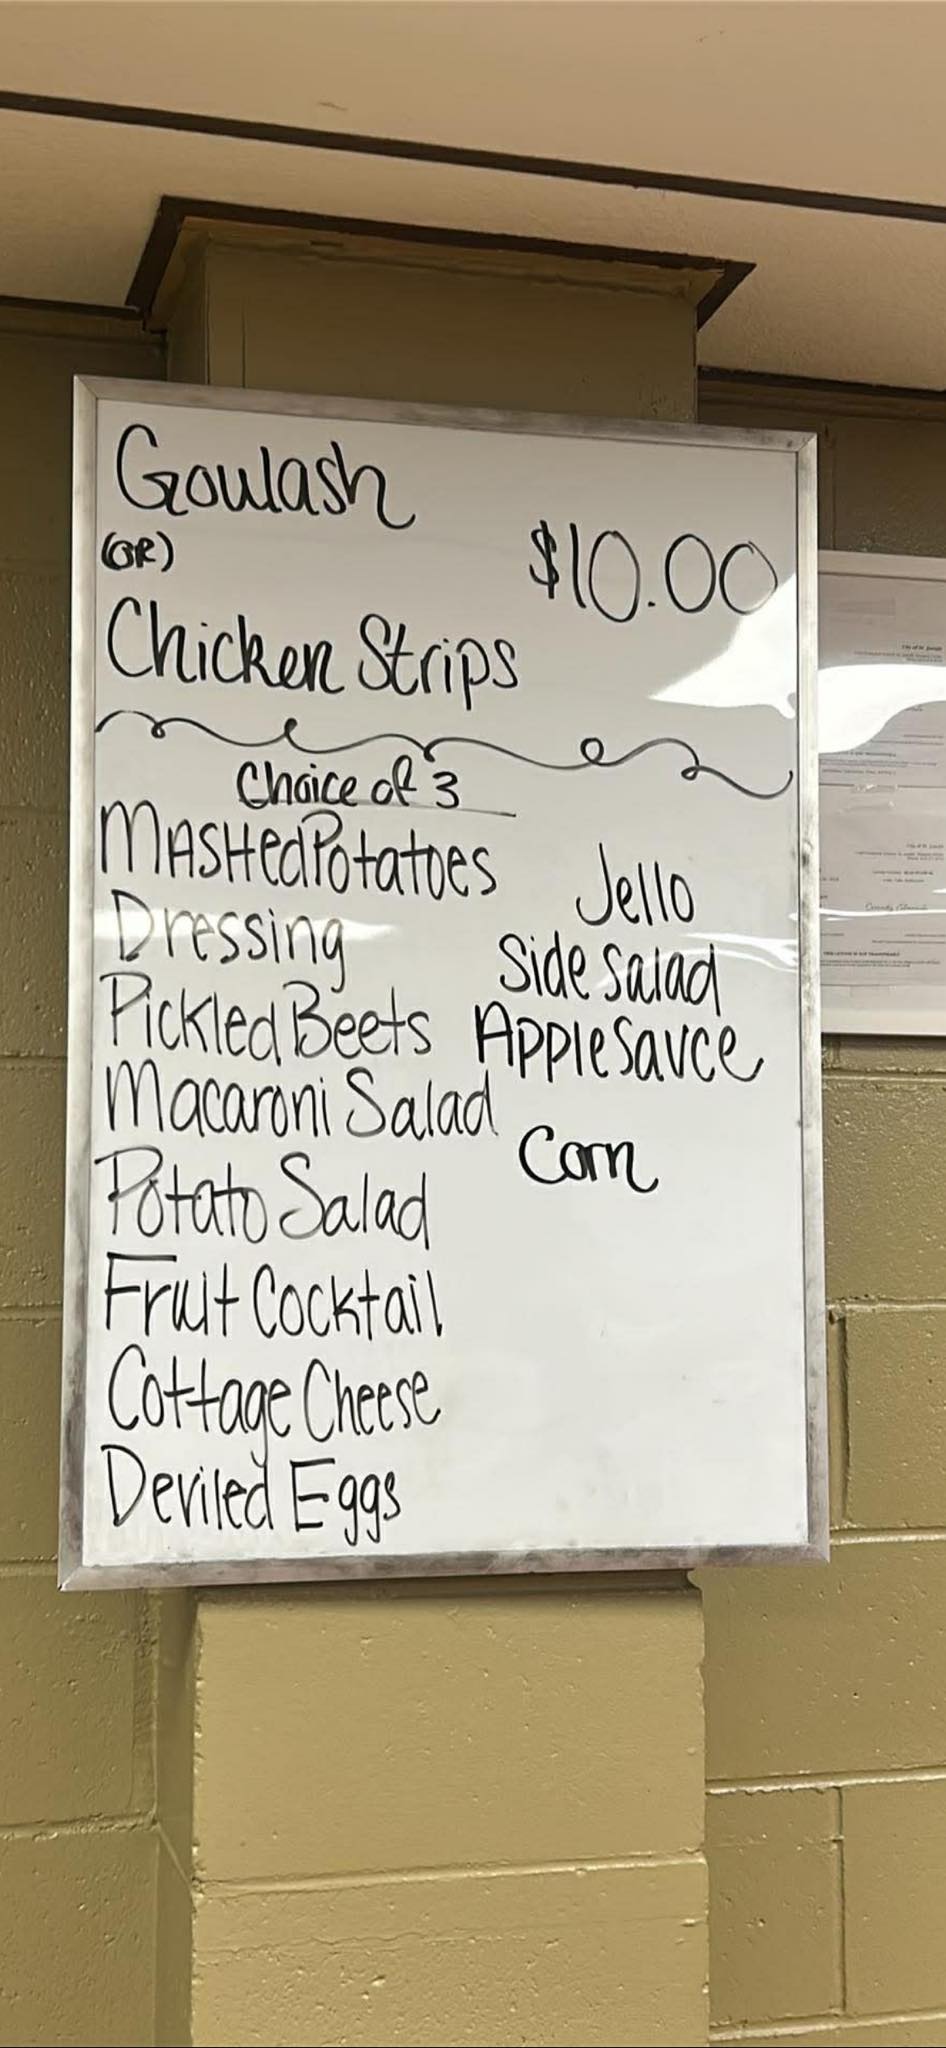 Goulash
(OR)
$10.00
Chicken Strips
Choice of 3
MASHed Potatoes
Dressing
Pickled Beets
Macaroni Salad
Potato Salad
Fruit Cocktail
Cottage Cheese
Deviled Eggs
Jello
Side Salad
Applesauce
Corn